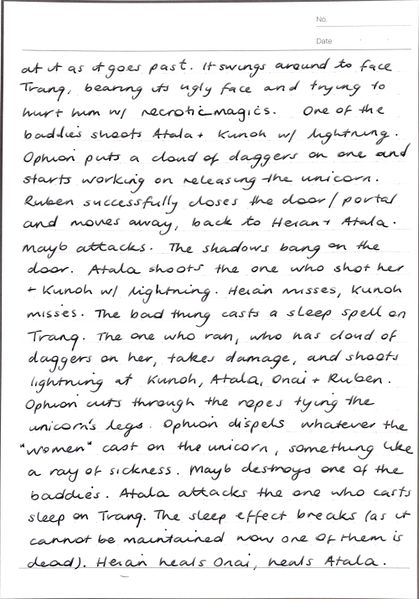 No.
Date
at it as it goes past. It swings around to face
Trang, bearing its ugly face and trying to
hurt him w/ necrotic magics. One of the
baddies shoots Atala + Kunoh w/ lightning.
Ophion puts a cloud of daggers on one and
starts working on releasing the unicorn.
Ruben successfully closes the door/portal
and moves away, back to Heian + Atala.
Mayb attacks. The shadows bang on the
door. Atala shoots the one who shot her
+ Kunoh w/ lightning. Heian misses, Kunoh
misses. The bad thing casts a sleep spell on
Trang. The one who ran, who has cloud of
daggers on her, takes damage, and shoots
lightning at Kunoh, Atala, Onai + Ruben.
Ophion cuts through the ropes tying the
unicorn's legs. Ophion dispels whatever the
"women" cast on the unicorn, something like
a ray of sickness. Mayb destroys one of the
baddies. Atala attacks the one who casts
sleep on Trang. The sleep effect breaks (as it
cannot be maintained now one of them is
dead). Heian heals Onai, heals Atala.